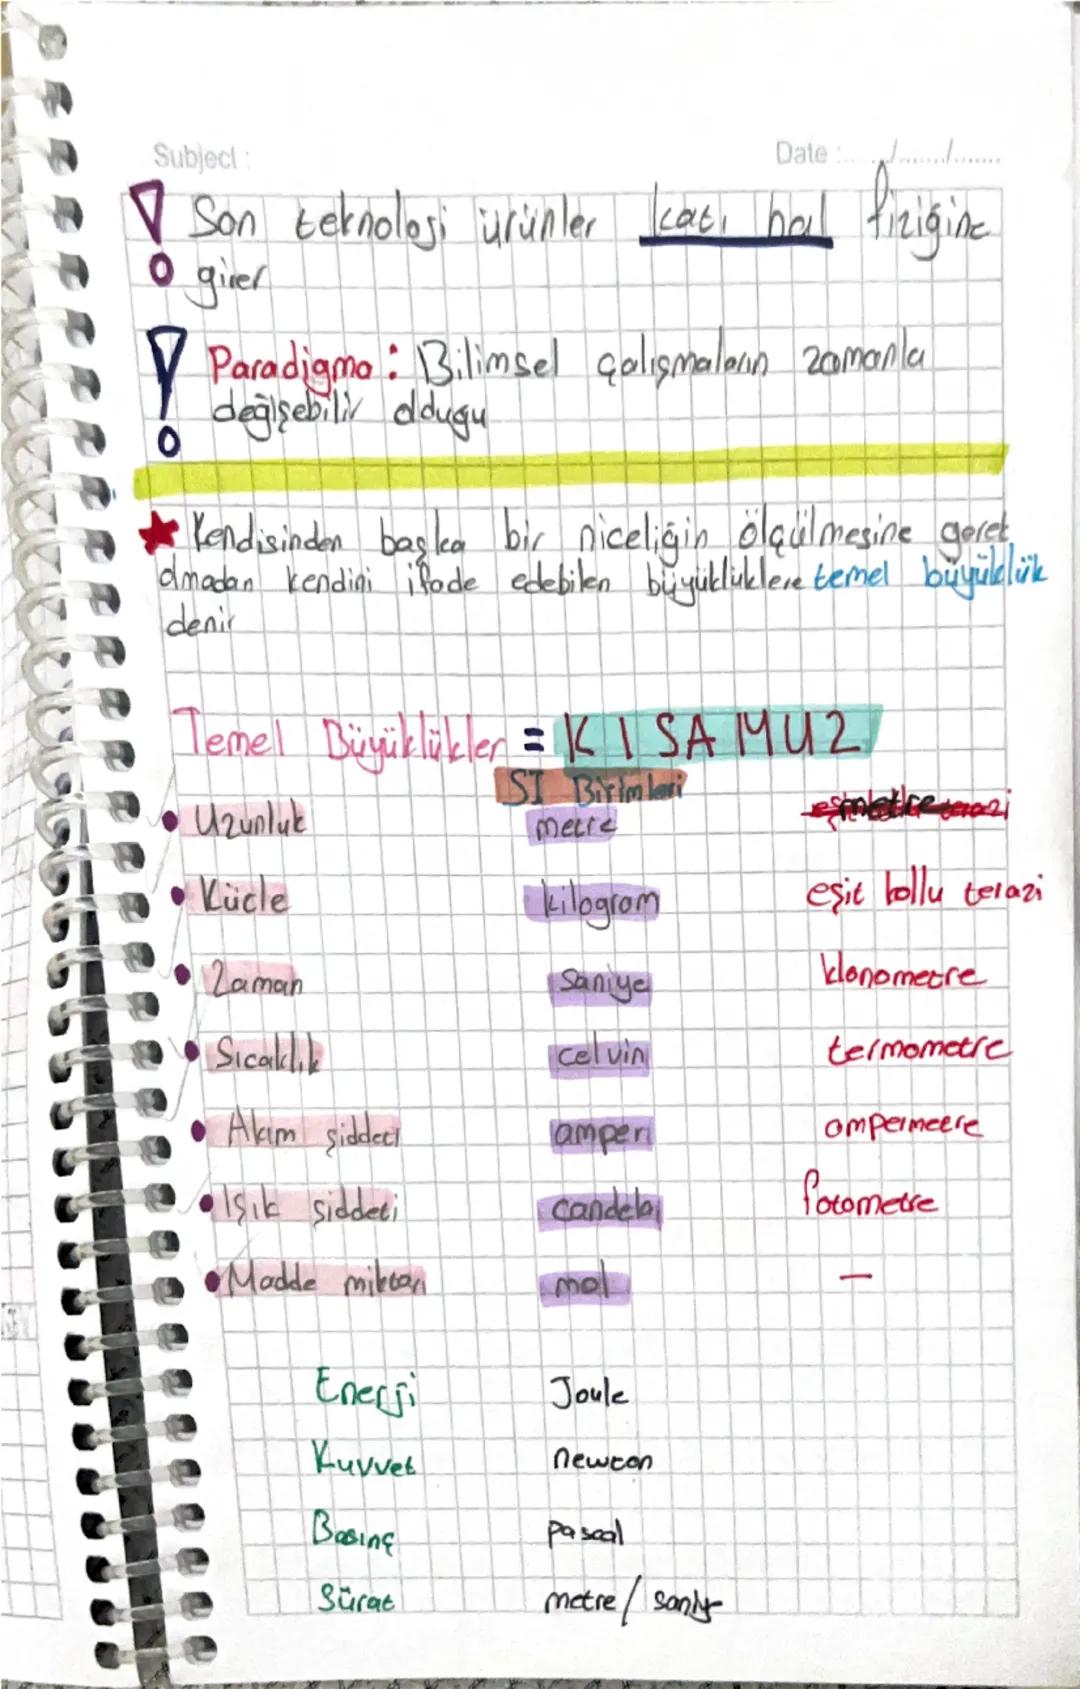 Subject :
Date :....../......./.......
Son teknoloji ürünler katı hal fiziğine
girer
Paradigma : Bilimsel çalışmaların zamanla
değişebilir olduğu
Kendisinden başka bir niceliğin ölçülmesine gerek
olmadan kendini ifade edebilen büyüklüklere temel büyüklük
denir
Temel Büyüklükler = KISAMUZ
SI Birimleri
Uzunluk metre metre
Kücle kilogram eşit kollu terazi
Zaman Saniye klonometre
Sıcaklık celvin termometre
Akım şiddeti amper ampermetre
Işık şiddeti candela fotometre
Madde miktarı mol –
Enerji Joule
Kuvvet newton
Basınç pascal
Sürat metre/